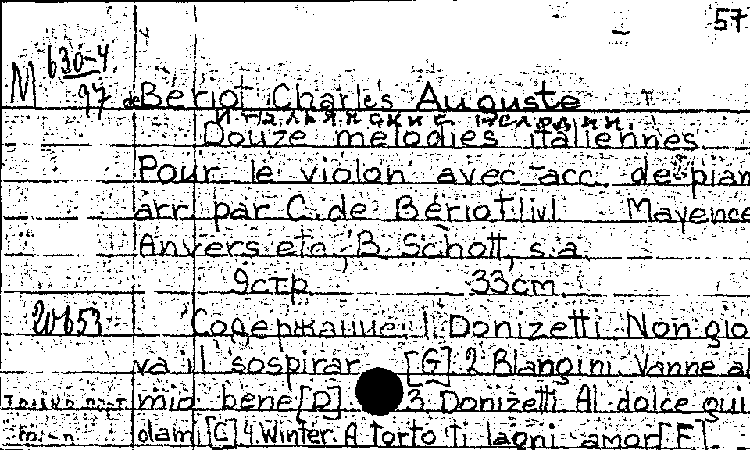 57
M 630-4
97 de Bériot Charles Auguste
Итальянские мелодии.
Douze mélodies italiennes
Pour le violon avec acc. de pian
arr par C. de Bériot. liv I Mayence
Anvers etc, B. Schott, s. a
9 стр 33 cm.
20653 Содержание: 1. Donizetti. Non gio
va il sospirar [G] 2. Blangini. Vanne al
mio bene [D] 3. Donizetti Al dolce gui
dami [G] 4. Winter. A torto ti lagni amor [F].